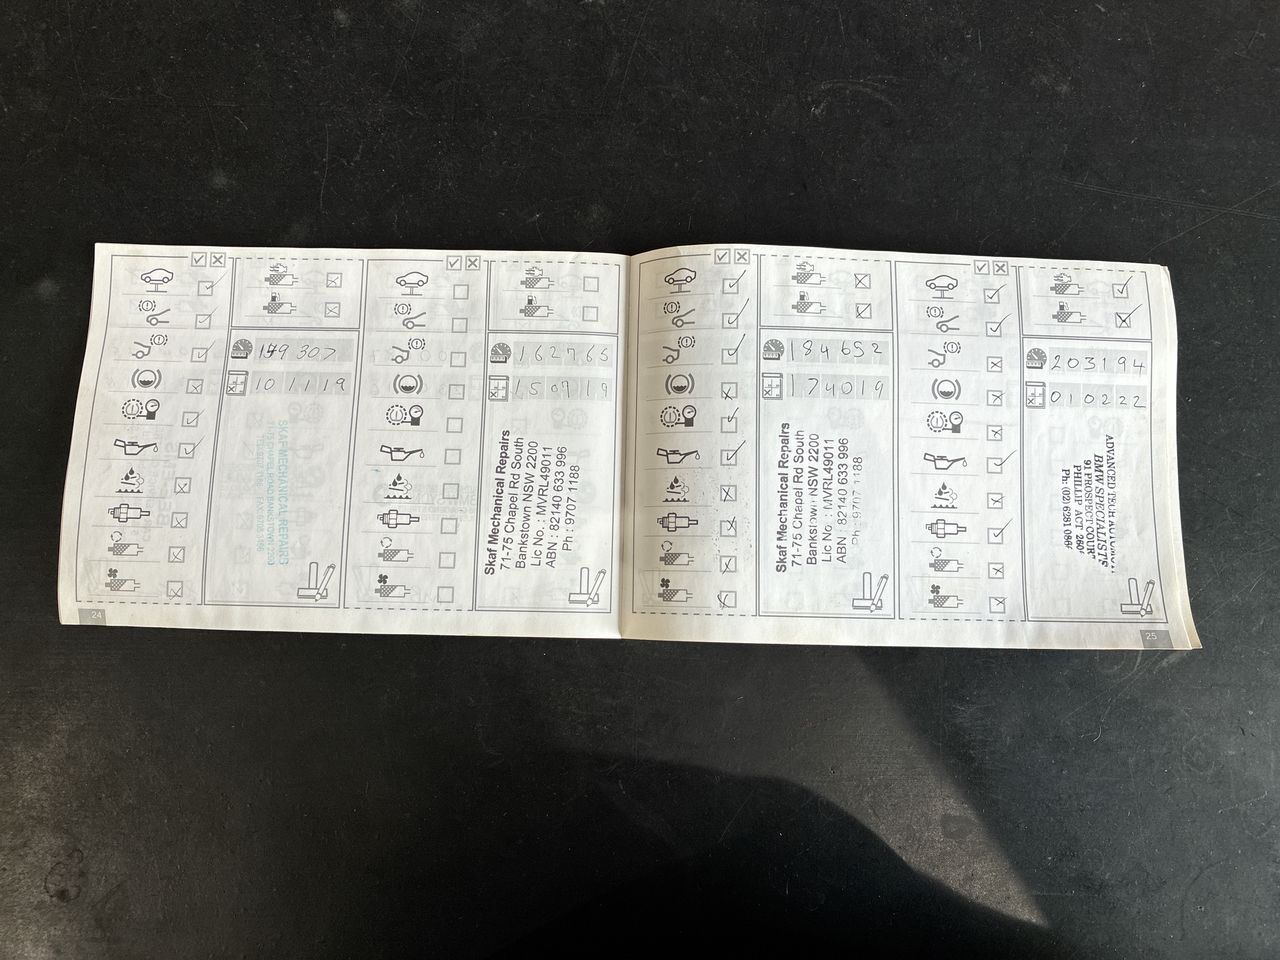 149 307
10 11 19
SKAF MECHANICAL REPAIRS
71-75 CHAPEL ROAD BANKSTOWN 2200
24
162765
Skaf Mechanical Repairs
71-75 Chapel Rd South
Bankstown NSW 2200
Lic No. : MVRL49011
ABN : 82140 633 996
Ph : 9707 1188
184652
174019
Skaf Mechanical Repairs
71-75 Chapel Rd South
Bankstown NSW 2200
Lic No. : MVRL49011
ABN : 82140 633 996
Ph : 9707 1188
203194
010222
ADVANCED TECH
BMW SPECIALISTS
91 PROSPECT COURT
PHILLIP ACT
Ph: (02) 6281 086
25